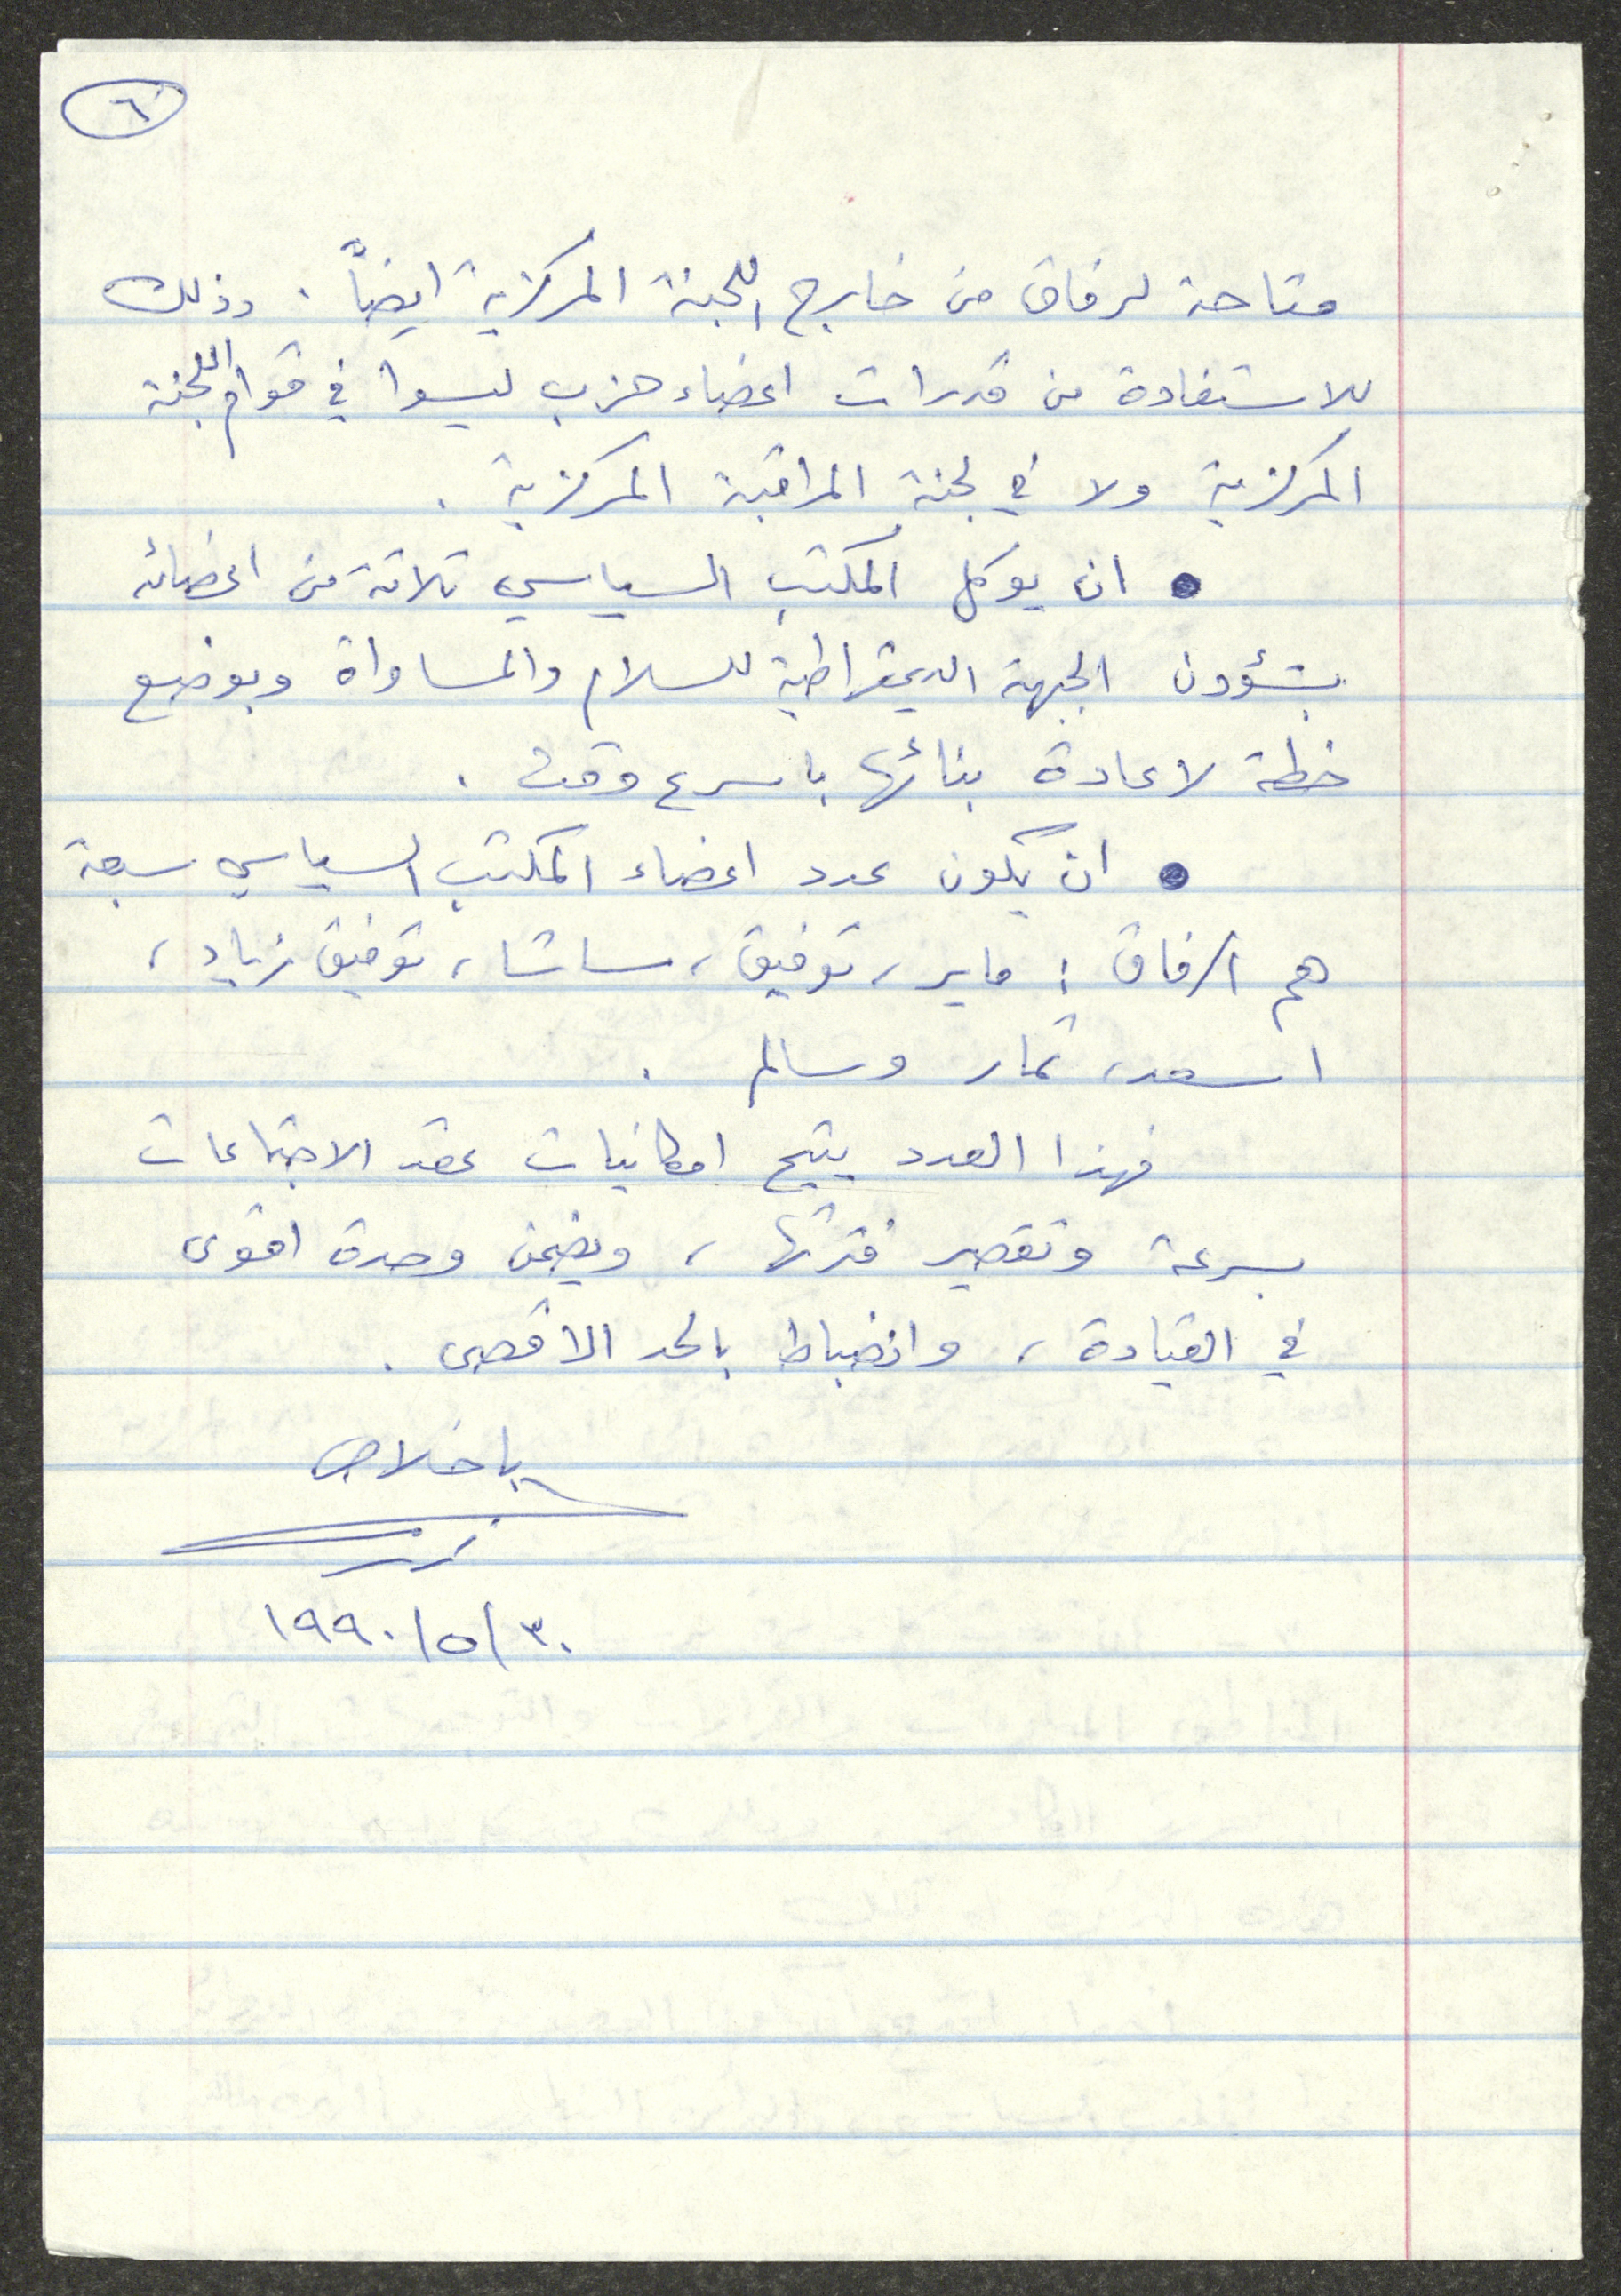 ٦
متاحة لرفاق من خارج اللجنة المركزية ايضاً. وذلك
للاستفادة من قدرات اعضاء حزب ليسوا في قوام اللجنة
المركزية ولا في لجنة المراقبة المركزية.
● ان يوكل المكتب السياسي ثلاثة من اعضائه
بشؤون الجبهة الديمقراطية للسلام والمساواة وبوضع
خطة لاعادة بنائها باسرع وقت.
● ان يكون عدد اعضاء المكتب السياسي سبعة
هم الرفاق: ماير، توفيق، ساشا، توفيق زياد،
اسعد، تمار وسالم.
فهذا العدد يتيح امكانيات عقد الاجتماعات
بسرعة وتقصير فترتها، ويضمن وحدة اقوى
في القيادة، وانضباط بالحد الاقصى.
باخلاص
٣٠/٥/١٩٩٠